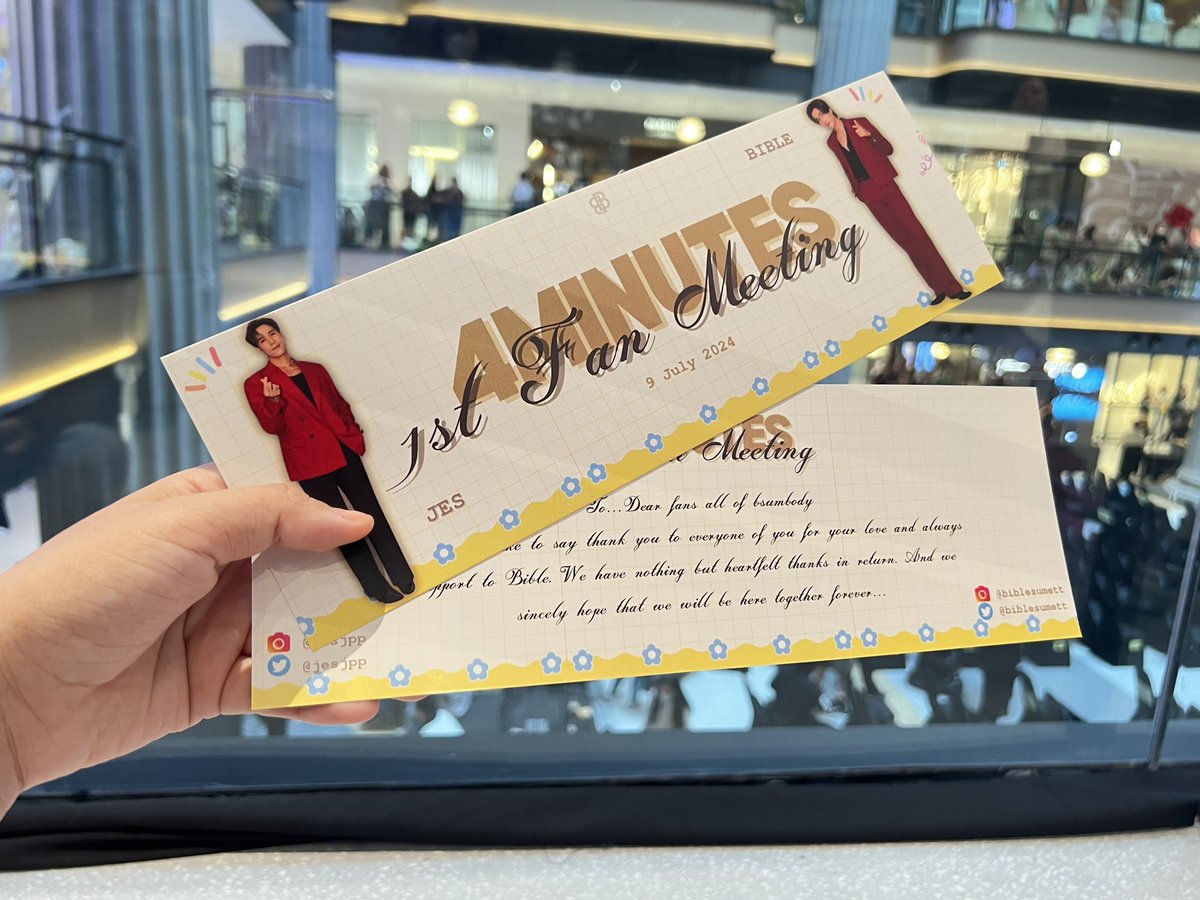 BIBLE
4MINUTES
1st Fan Meeting
9 July 2024
JES
ES
Meeting
To...Dear fans all of bsumbody
to say thank you to everyone of you for your love and always
to Bible. We have nothing but heartfelt thanks in return. And we
sincely hope that we will be here together forever...
@biblesumett
@biblesumett
@jesjpp
@jesjpp